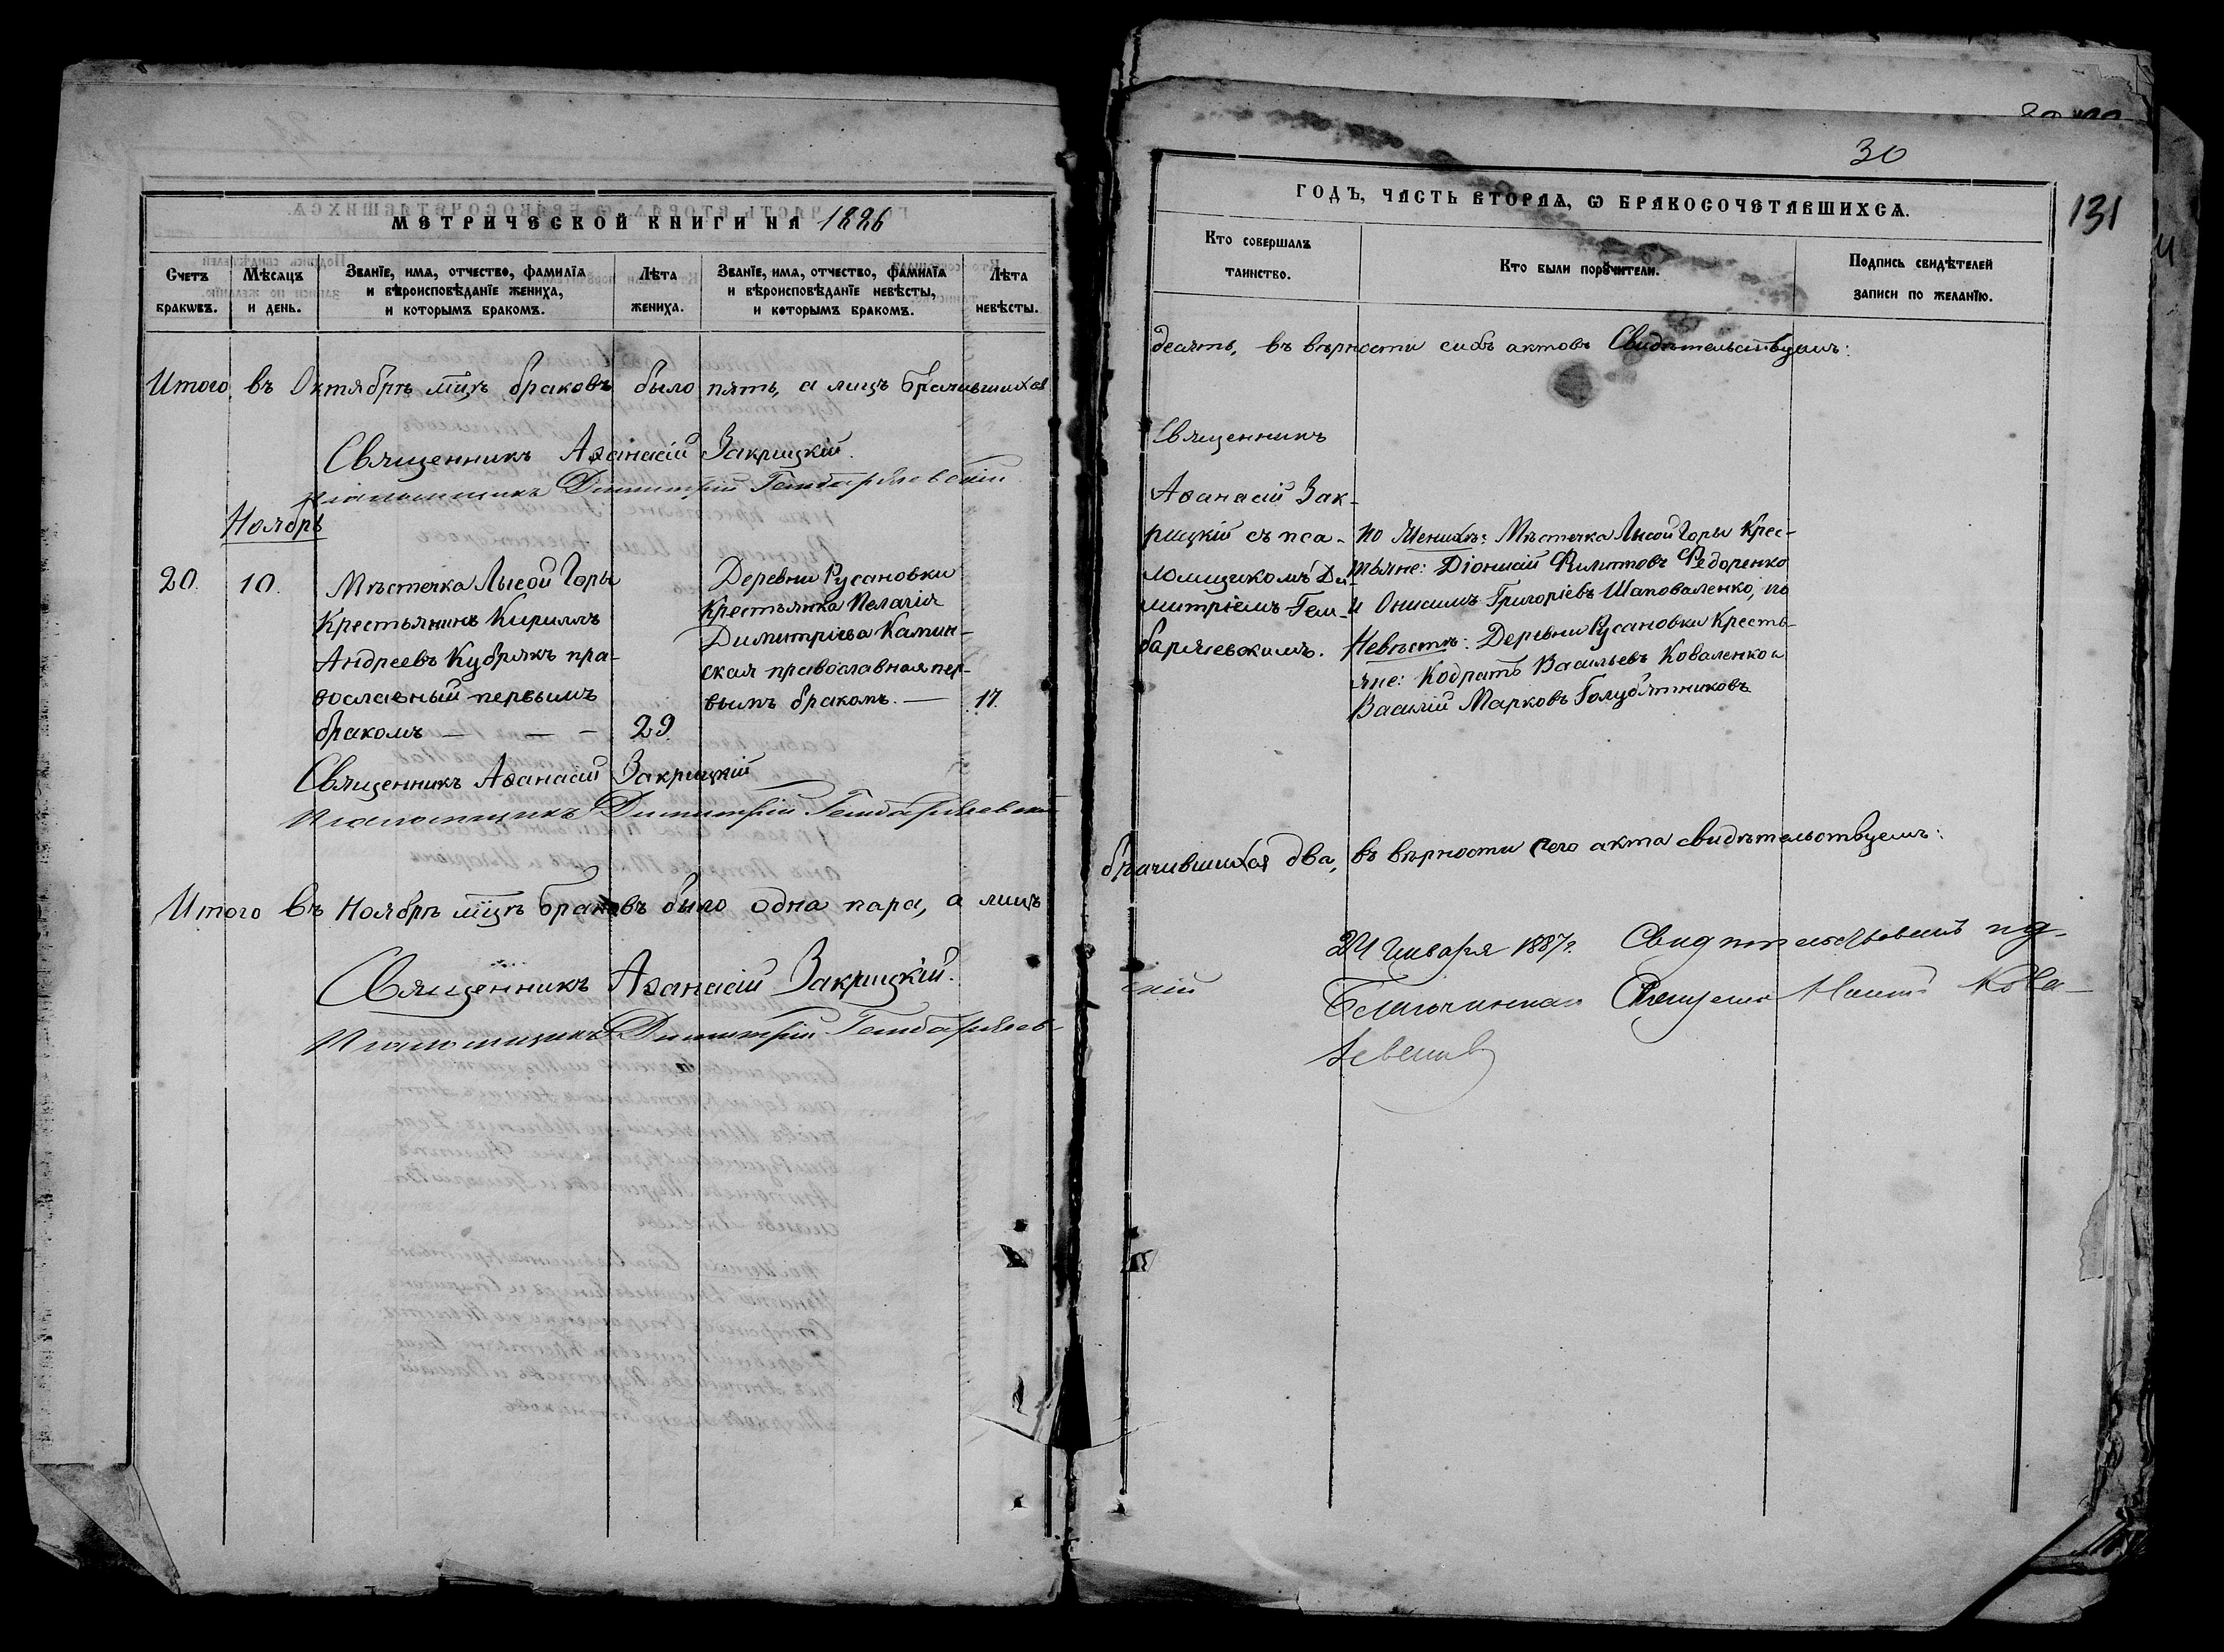 МЕТРИЧЕСКОЙ КНИГИ НА 1886
Счетъ браковъ.
Мѣсяцъ и день.
Званіе, имя, отчество, фамилія и вѣроисповѣданіе жениха, и которымъ бракомъ.
Лѣта жениха.
Званіе, имя, отчество, фамилія и вѣроисповѣданіе невѣсты, и которымъ бракомъ.
Лѣта невѣсты.
Итого въ Октябрѣ мцѣ браковъ было пять, а лицъ брачившихся
Священникъ Аѳанасій Закрицкій.
Псаломщикъ Димитрій Гембаржевскій
Ноябрь
20. 10.
Мѣстечка Лысой Горы
Крестьянинъ Кириллъ
Андреевъ Кубракъ пра-
вославный первымъ
бракомъ — — — 29.
Деревни Русановки
Крестьянка Пелагія
Димитріева Камин-
ская православная пер-
вымъ бракомъ. — 17.
Священникъ Аѳанасій Закрицкій
Псаломщикъ Димитрій Гембаржевскій
Итого въ Ноябрѣ мцѣ браковъ было одна пара, а лицъ
Священникъ Аѳанасій Закрицкій.
Псаломщикъ Димитрій Гембаржев-
30
131
ГОДЪ, ЧАСТЬ ВТОРАЯ, Ѡ БРАКОСОЧЕТАВШИХСЯ.
Кто совершалъ таинство.
Кто были поручители.
Подпись свидѣтелей записи по желанію.
десять, въ вѣрности сихъ актовъ Свидѣтельствуемъ:
Священникъ
Аѳанасій Зак-
рицкій съ пса-
ломщикомъ Ди-
митріемъ Гем-
баржевскимъ.
по Женихѣ: Мѣстечка Лысой Горы Крес-
тьяне: Діонисій Филиповъ Федоренко
и Онисимъ Григоріевъ Шаповаленко, по
Невѣстѣ: Деревни Русановки Кресть-
яне: Кодратъ Васильевъ Коваленко и
Василій Марковъ Голубятниковъ
брачившихся два, въ вѣрности сего акта свидѣтельствуемъ:
скій
24 Января 1887 г. Свидѣтельствовалъ
Благочинный Священникъ